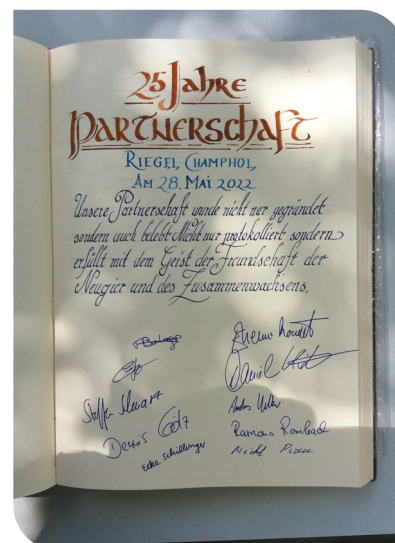 25 Jahre
Partnerschaft
Riegel, Champhol,
Am 28. Mai 2022
Unsere Partnerschaft wurde nicht nur gegründet
sondern auch belebt. Nicht nur protokolliert, sondern
erfüllt mit dem Geist der Freundschaft der
Neugier und des Zusammenwachsens.
Daniel
Steffen Schwarz
Dennis Götz
Ramona Rombach
Edke Schillinger